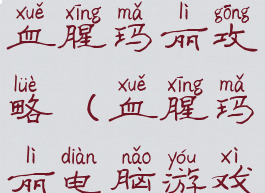 xuě xīng mǎ lì gōng
血腥玛丽攻
lüè xuě xīng mǎ
略（血腥玛
lì diàn nǎo yóu xì
丽电脑游戏